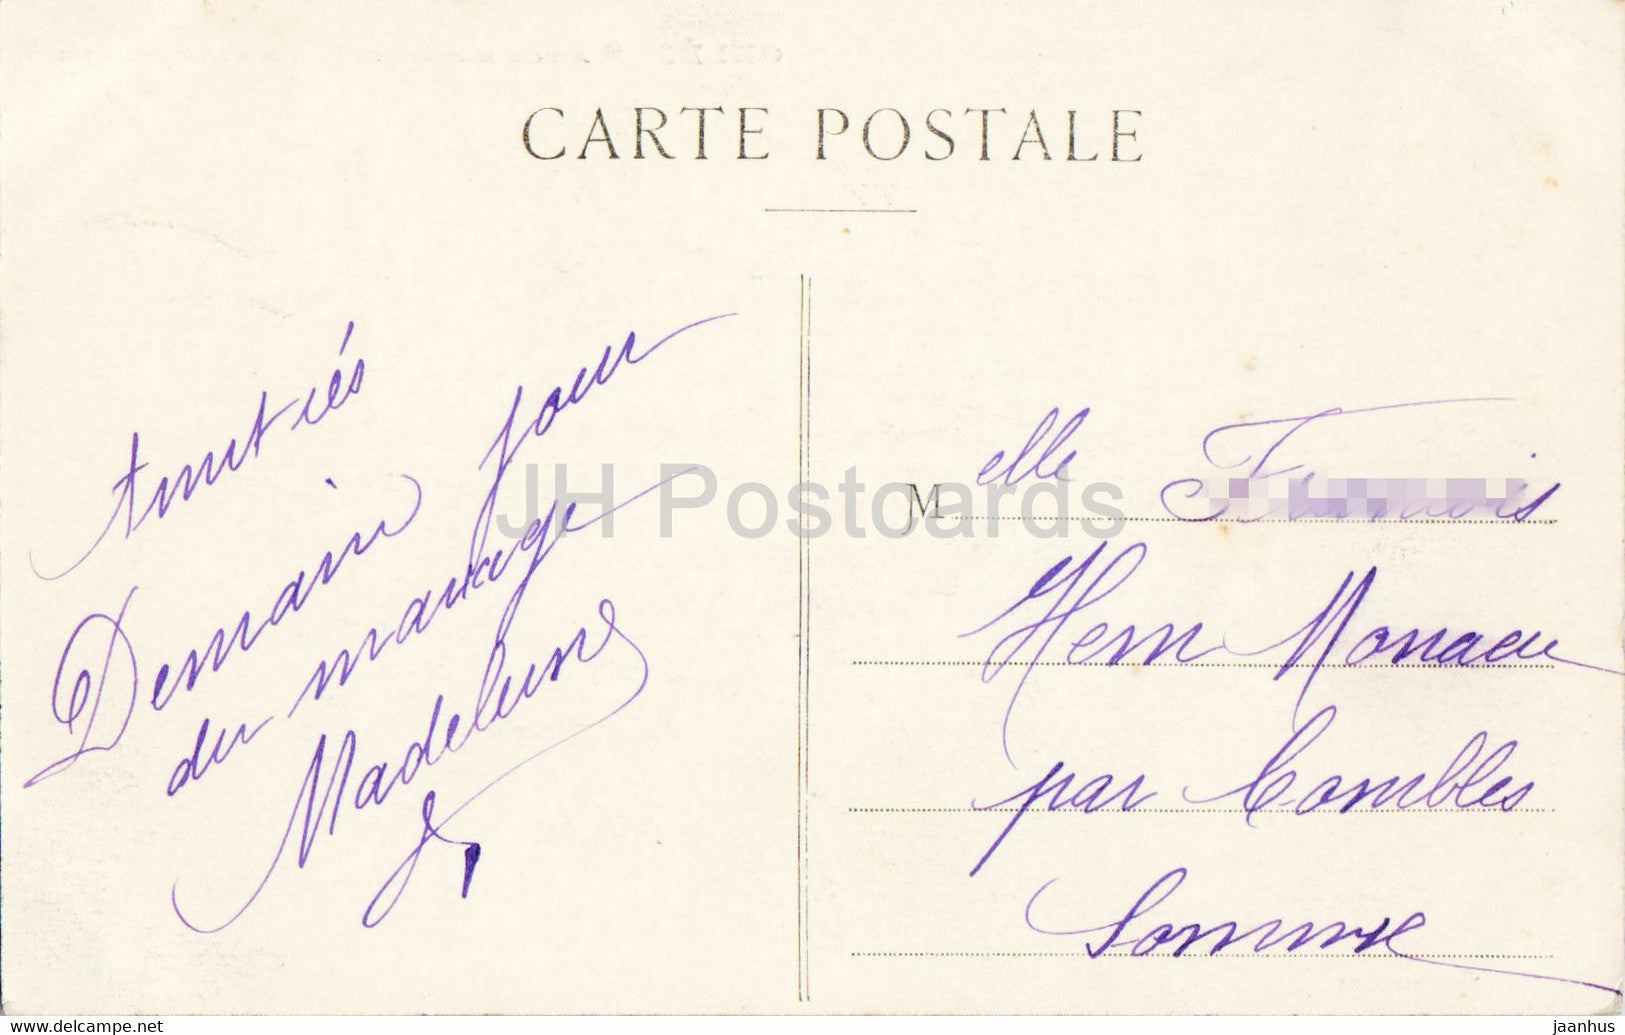 CARTE POSTALE
Amitiés
Demain jour
du mariage
Madeleine
M elle
Hem Monacu
par Combles
Somme
JH Postcards
www.delcampe.net
jaanhus